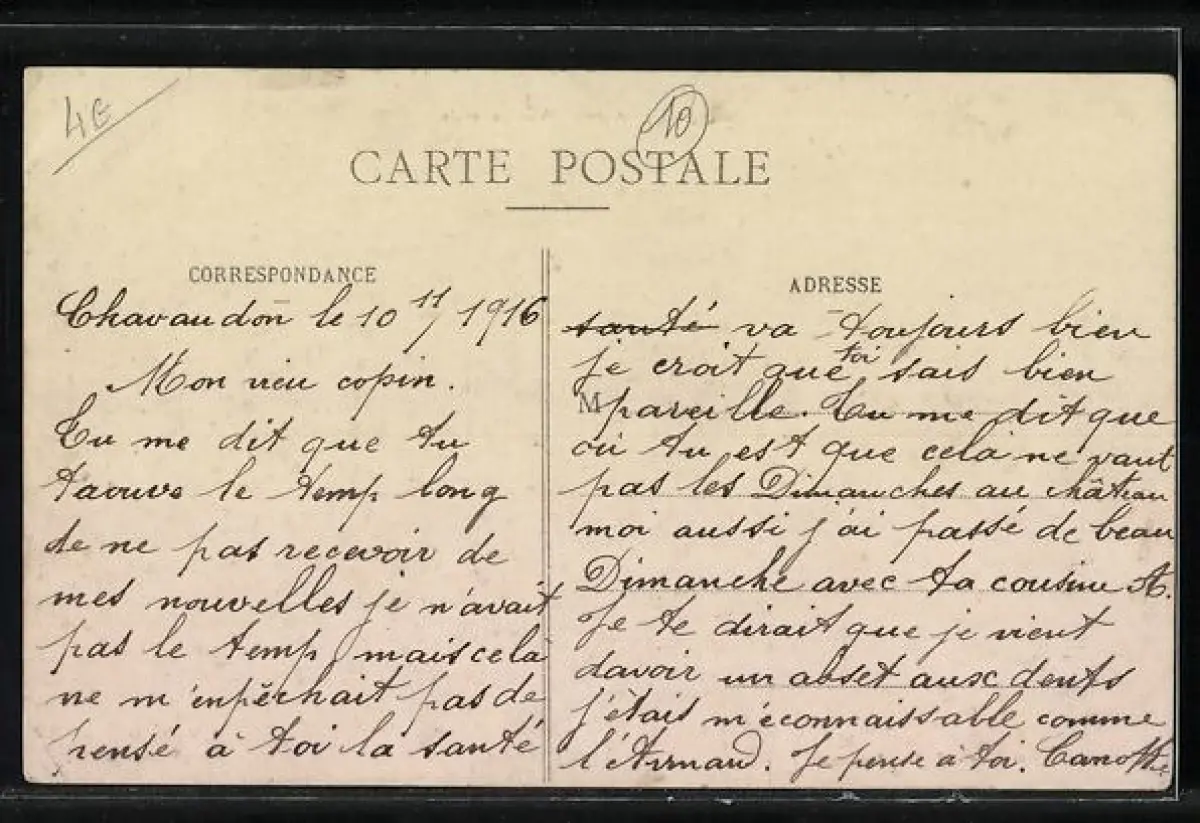 4€
10
CARTE POSTALE
CORRESPONDANCE
Chavaudon le 10 11/ 1916
Mon vieu copin.
Tu me dit que tu
taouve le temp long
de ne pas recevoir de
mes nouvelles je n'avait
pas le temp mais celà
ne m'enpêchait pas de
pensé à toi la santé
ADRESSE
santé va toujours bien
je croit que toi sais bien
M pareille. Tu me dit que
où tu est que celà ne vaut
pas les Dimanches au château
moi aussi j'ai passé de beau
Dimanche avec ta cousine A.
Je te dirait que je vient
davoir un abset aux dents
j'étais m'éconnaissable comme
l'Armand. Je pense à toi.